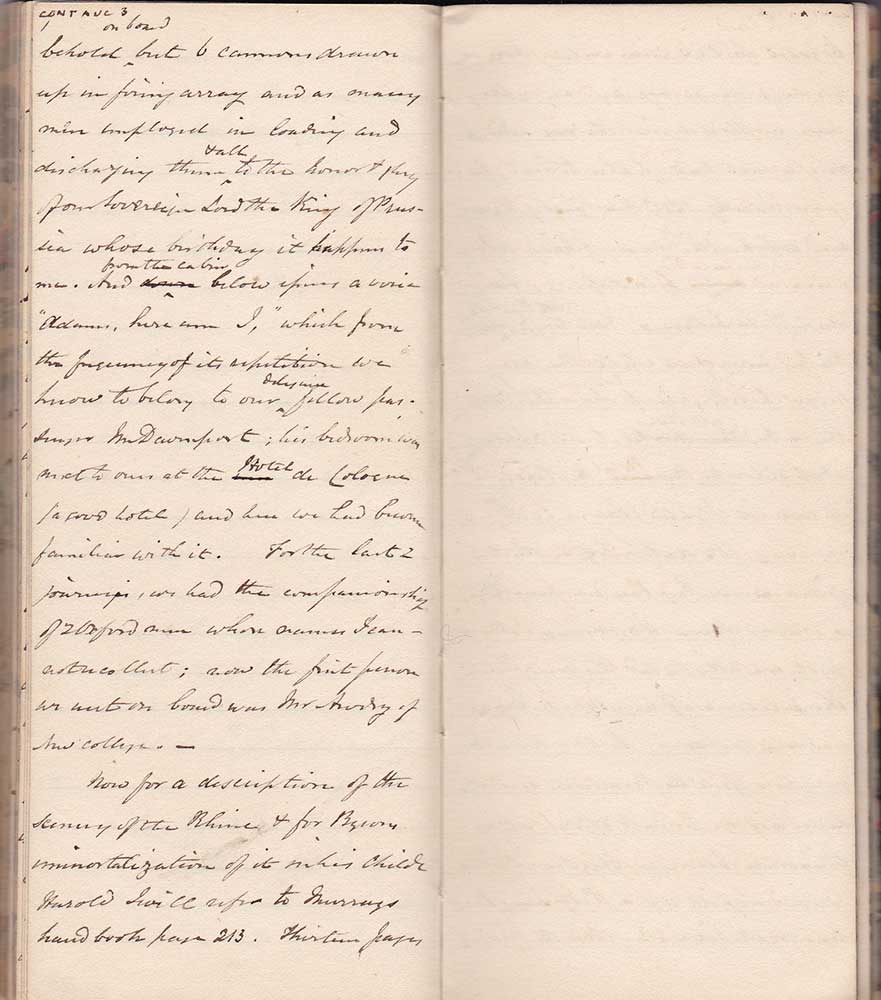 CONT AUG 3
on board
behold but 6 cannons drawn
up in firing array and as many
men employed in loading and
& all
discharging them to the honor & glory
of our Sovereign Lord the King of Prus-
sia whose birthday it happens to
from the cabin
me. And down below issues a voice
"Adams, here am I," which from
the frequency of its repetition we
know to belong to our fellow pas-
senger Mr Davenport; his bedroom was
Hotel
next to ours at the de Cologne
(a good hotel) and here we had become
familiar with it. For the last 2
journeys, we had the companionship
of 2 Oxford men whose names I can-
not recollect; now the first person
we met on board was Mr of
New College. —
Now for a description of the
scenery of the Rhine & for Byrons
immortalization of it in his Childe
Harold I will refer to Murrays
handbook page 213. Thirteen pages